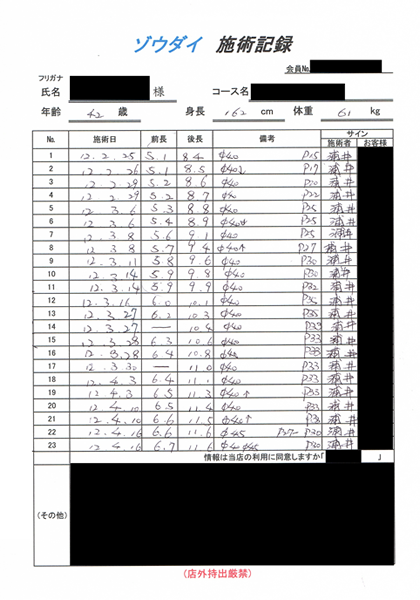 ゾウダイ 施術記録
会員No.
フリガナ
氏名 様 コース名
年齢 42 歳 身長 162 cm 体重 61 kg
No. 施術日 前長 後長 備考 サイン
施術者 お客様
1 12.2.25 5.1 8.4 φ40 P15
2 12.2.26 5.1 8.5 φ40↓ P17
3 12.2.29 5.2 8.6 φ40 P20
4 12.2.29 5.2 8.7 φ40 P22
5 12.3.6 5.3 8.8 φ40 P25
6 12.3.6 5.4 8.9 φ40 P25
7 12.3.8 5.6 9.1 φ40 P25
8 12.3.8 5.7 9.4 φ40↑ P27
9 12.3.11 5.8 9.6 φ40 P30
10 12.3.14 5.9 9.8 φ40 P30
11 12.3.14 5.9 9.9 φ40 P32
12 12.3.16 6.0 10.1 φ40 P35
13 12.3.27 6.2 10.3 φ40 P35
14 12.3.27 — 10.4 φ40 P33
15 12.3.28 6.3 10.6 φ40 P33
16 12.3.28 6.4 10.8 φ40 P33
17 12.3.30 — 11.0 φ40 P33
18 12.4.3 6.4 11.1 φ40 P33
19 12.4.3 6.5 11.3 φ40↑ P35
20 12.4.10 6.5 11.4 φ40
21 12.4.10 6.6 11.5 φ40↑
22 12.4.16 6.6 11.6 φ45 P30
23 12.4.16 6.7 11.6 φ40 φ45 P40
情報は当店の利用に同意しますか「 」
(その他)
(店外持出厳禁)